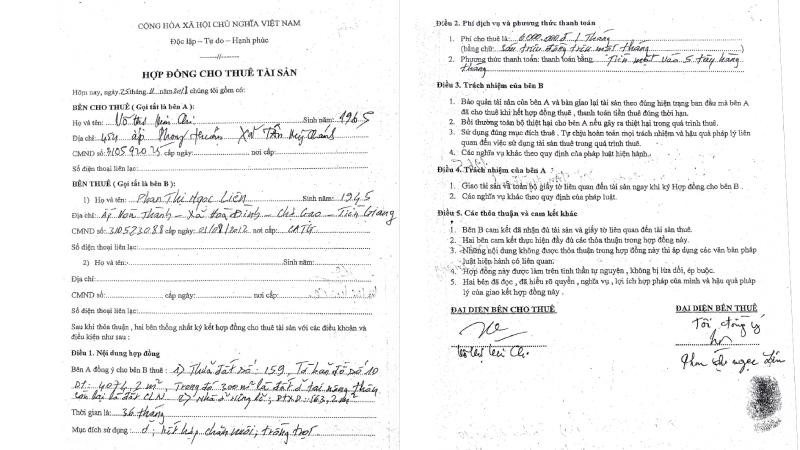 CỘNG HÒA XÃ HỘI CHỦ NGHĨA VIỆT NAM
Độc lập – Tự do – Hạnh phúc
-----//-----
HỢP ĐỒNG CHO THUÊ TÀI SẢN
Hôm nay, ngày 25 tháng 11 năm 2018 chúng tôi gồm có:
BÊN CHO THUÊ ( Gọi tắt là bên A ):
Họ và tên: Võ Thị Kim Chi Sinh năm: 1965
Địa chỉ: 454 ấp Phong Thuấn Xã Tân Mỹ Chánh
CMND số: 310592025 cấp ngày: nơi cấp:
Số điện thoại liên lạc:
BÊN THUÊ ( Gọi tắt là bên B ):
1) Họ và tên: Phan Thị Ngọc Liên Sinh năm: 1945
Địa chỉ: Ấp Hòa Thành – Xã Hòa Định – Chợ Gạo – Tiền Giang
CMND số: 310523088 cấp ngày: 01/08/2012 nơi cấp: CATG
Số điện thoại liên lạc:
2) Họ và tên: Sinh năm:
Địa chỉ:
CMND số: cấp ngày: nơi cấp:
Số điện thoại liên lạc:
Sau khi thỏa thuận , hai bên thống nhất ký kết hợp đồng cho thuê tài sản với các điều khoản và
điều kiện như sau :
Điều 1. Nội dung hợp đồng
Bên A đồng ý cho bên B thuê : 1) Thửa đất số: 159, Tờ bản đồ số 10
DT: 4074,2 m², Trong đó 300 m² là đất ở tại nông thôn
còn lại là đất CLN 2) Nhà ở riêng lẻ; DTXD: 163,2 m²
Thời gian là: 36 tháng
Mục đích sử dụng : ở, kết hợp chăn nuôi, trồng trọt
Điều 2. Phí dịch vụ và phương thức thanh toán
1. Phí cho thuê là: 6.000.000 đ / Tháng
(bằng chữ: sáu triệu đồng trên một tháng)
2. Phương thức thanh toán: thanh toán bằng Tiền mặt vào 5 tây hàng
tháng
Điều 3. Trách nhiệm của bên B
1. Bảo quản tài sản của bên A và bàn giao lại tài sản theo đúng hiện trạng ban đầu mà bên A
đã cho thuê khi hết hợp đồng thuê , thanh toán tiền thuê đúng thời hạn.
2. Bồi thường toàn bộ thiệt hại cho bên A nếu gây ra thiệt hại trong quá trình thuê.
3. Sử dụng đúng mục đích thuê . Tự chịu hoàn toàn mọi trách nhiệm và hậu quả pháp lý liên
quan đến việc sử dụng tài sản thuê trong quá trình thuê.
4. Các nghĩa vụ khác theo quy định của pháp luật hiện hành.
Điều 4. Trách nhiệm của bên A
1. Giao tài sản và toàn bộ giấy tờ liên quan đến tài sản ngay khi ký Hợp đồng cho bên B .
2. Các nghĩa vụ khác theo quy định của pháp luật.
Điều 5. Các thỏa thuận và cam kết khác
1. Bên B cam kết đã nhận đủ tài sản và giấy tờ liên quan đến tài sản thuê.
2. Hai bên cam kết thực hiện đầy đủ các thỏa thuận trong hợp đồng này.
3. Những nội dung không được thỏa thuận trong hợp đồng này thì áp dụng các văn bản pháp
luật hiện hành có liên quan.
4. Hợp đồng này được làm trên tinh thần tự nguyện , không bị lừa dối, ép buộc.
5. Hai bên đã đọc , đã hiểu rõ quyền , nghĩa vụ , lợi ích hợp pháp của mình và hậu quả pháp
lý của giao kết hợp đồng này .
ĐẠI DIỆN BÊN CHO THUÊ
Võ Thị Kim Chi
ĐẠI DIỆN BÊN THUÊ
Tôi đồng ý
Phan Thị Ngọc Liên